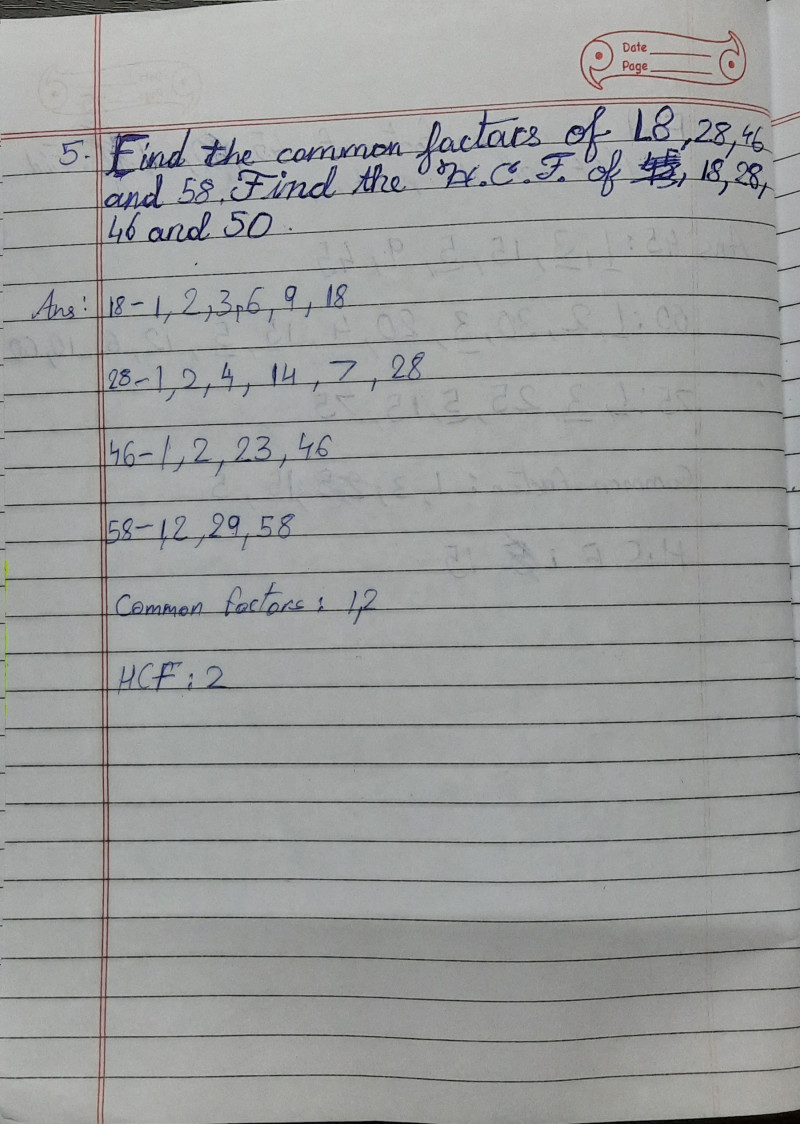 Date
Page
5. Find the common factors of 18, 28, 46
and 58. Find the H.C.F. of 18, 28,
46 and 50.
Ans: 18 - 1, 2, 3, 6, 9, 18
28 - 1, 2, 4, 14, 7, 28
46 - 1, 2, 23, 46
58 - 1,2, 29, 58
Common factors: 1,2
HCF: 2